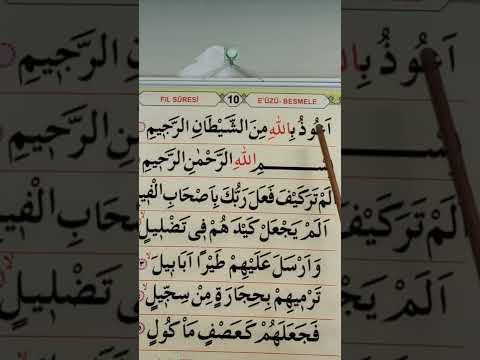 FIL SÛRESİ 10 E'ÛZÜ- BESMELE
اَعُوذُ بِاللّٰهِ مِنَ الشَّيْطَانِ الرَّج۪يمِ
ـسْـــــمِ اللّٰهِ الرَّحْمٰنِ الرَّح۪يمِ
لَمْ تَرَ كَيْفَ فَعَلَ رَبُّكَ بِاَصْحَابِ الْف۪ي
اَلَمْ يَجْعَلْ كَيْدَ هُمْ ف۪ى تَضْل۪يلٍ
وَ اَرْسَلَ عَلَيْهِمْ طَيْرًا اَبَاب۪يلَ
تَرْم۪يهِمْ بِحِجَارَةٍ مِنْ سِجّ۪يلٍ
فَجَعَلَهُمْ كَعَصْفٍ مَأْ كُولٍ